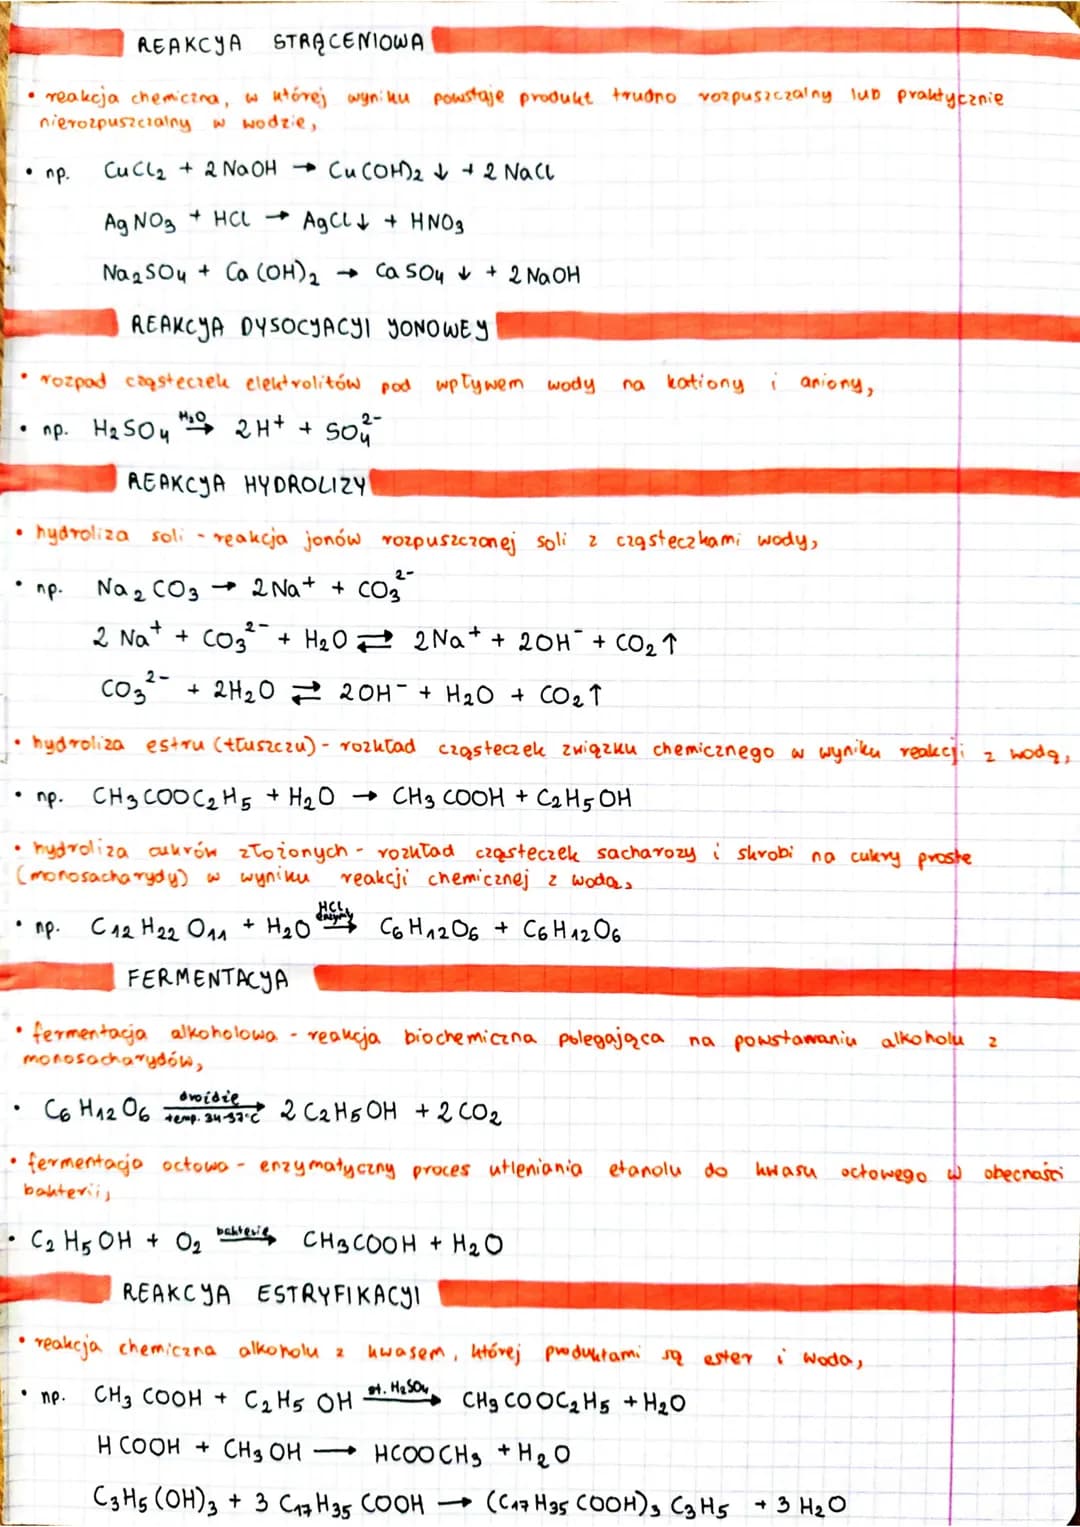 REAKCJA STRĄCENIOWA
• reakcja chemiczna, w której wyniku powstaje produkt trudno rozpuszczalny lub praktycznie
nierozpuszczalny w wodzie,
• np. CuCl₂ + 2 NaOH → Cu(OH)₂ ↓ + 2 NaCl
AgNO₃ + HCl → AgCl↓ + HNO₃
Na₂SO₄ + Ca(OH)₂ → CaSO₄ ↓ + 2 NaOH
REAKCJA DYSOCJACJI JONOWEJ
• rozpad cząsteczek elektrolitów pod wpływem wody na kationy i aniony,
• np. H₂SO₄ H₂O→ 2H⁺ + SO₄²⁻
REAKCJA HYDROLIZY
• hydroliza soli - reakcja jonów rozpuszczonej soli z cząsteczkami wody,
• np. Na₂CO₃ → 2Na⁺ + CO₃²⁻
2 Na⁺ + CO₃²⁻ + H₂O ⇄ 2Na⁺ + 2OH⁻ + CO₂↑
CO₃²⁻ + 2H₂O ⇄ 2OH⁻ + H₂O + CO₂↑
• hydroliza estru (tłuszczu) - rozkład cząsteczek związku chemicznego w wyniku reakcji z wodą,
• np. CH₃COOC₂H₅ + H₂O → CH₃COOH + C₂H₅OH
• hydroliza cukrów złożonych - rozkład cząsteczek sacharozy i skrobi na cukry proste
(monosacharydy) w wyniku reakcji chemicznej z wodą,
• np. C₁₂H₂₂O₁₁ + H₂O HCl, enzymy→ C₆H₁₂O₆ + C₆H₁₂O₆
FERMENTACJA
• fermentacja alkoholowa - reakcja biochemiczna polegająca na powstawaniu alkoholu z
monosacharydów,
• C₆H₁₂O₆ drożdże temp. 34-37°C→ 2 C₂H₅OH + 2 CO₂
• fermentacja octowa - enzymatyczny proces utleniania etanolu do kwasu octowego w obecności
bakterii,
• C₂H₅OH + O₂ bakterie→ CH₃COOH + H₂O
REAKCJA ESTRYFIKACJI
• reakcja chemiczna alkoholu z kwasem, której produktami są ester i woda,
• np. CH₃COOH + C₂H₅OH st. H₂SO₄→ CH₃COOC₂H₅ + H₂O
HCOOH + CH₃OH → HCOOCH₃ + H₂O
C₃H₅(OH)₃ + 3 C₁₇H₃₅COOH → (C₁₇H₃₅COOH)₃C₃H₅ + 3 H₂O